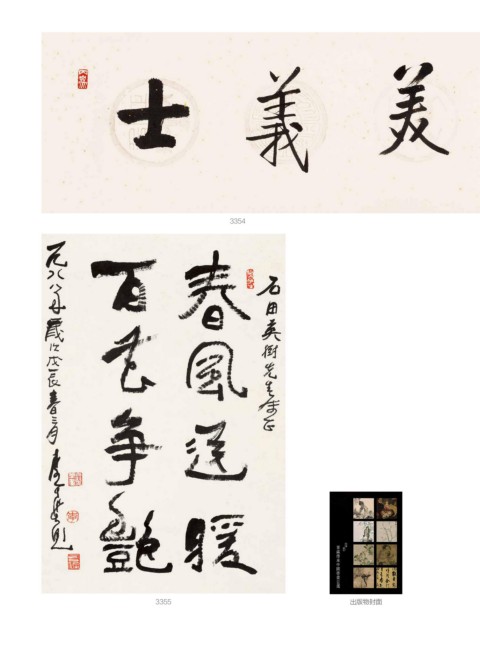 美義士
3354
石田英樹先生雅正
春風送暖
百花争艷
一九八八年歲次戊辰春三月
3355
出版物封面